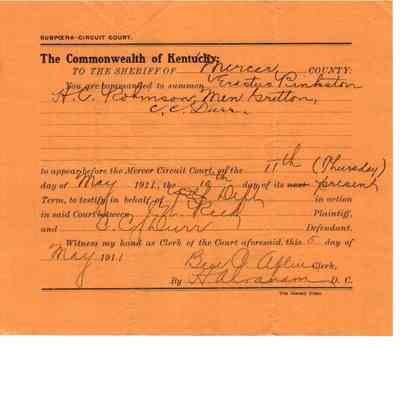 SUBPŒNA—CIRCUIT COURT.
The Commonwealth of Kentucky:
TO THE SHERIFF OF Mercer COUNTY:
You are commanded to summon Erastus Pinkston
H. C. Robinson, Men Gritton,
C. C. Durr.
to appear before the Mercer Circuit Court, on the 11th (Thursday)
day of May 1911, the 10th day of its next present
Term, to testify in behalf of Deft in action
in said Court between John Reed Plaintiff,
and C. C. Durr Defendant.
Witness my hand as Clerk of the Court aforesaid, this 5 day of
May 1911 Ben Allin Clerk,
By D. C.